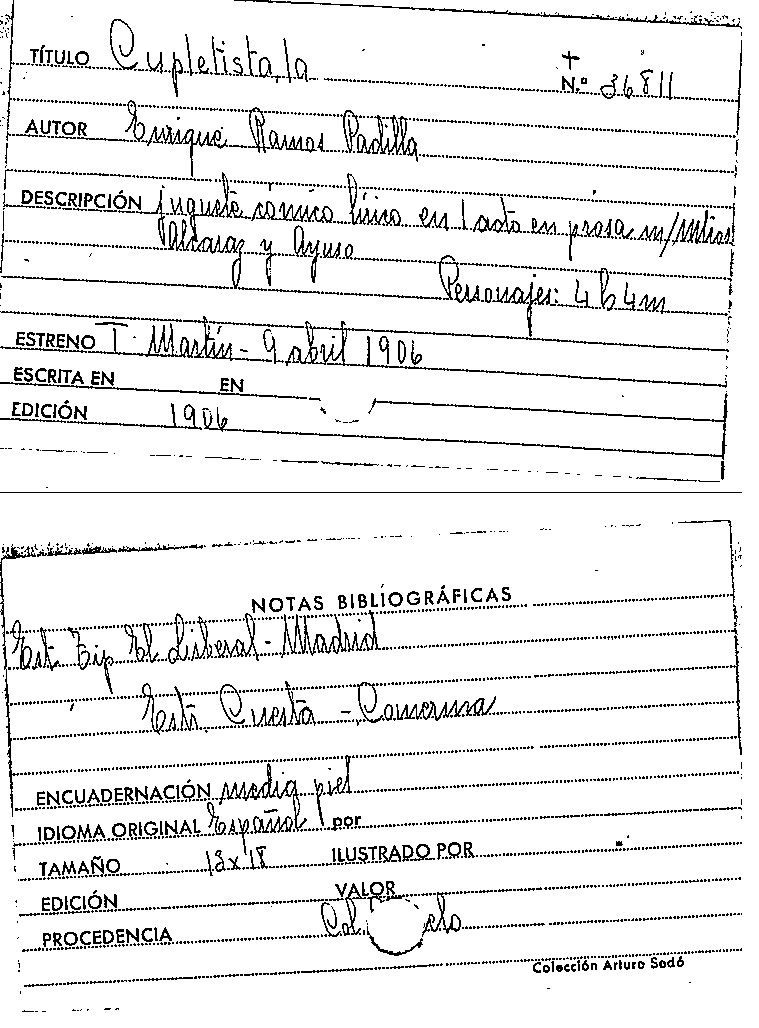 TÍTULO Cupletista, la
N.º 36811
AUTOR Enrique Ramos Padilla
DESCRIPCIÓN juguete cómico lírico en 1 acto en prosa m/
y Ayuso
Personajes: 4 h 4 m
ESTRENO T. Martín - 9 abril 1906
ESCRITA EN EN
EDICIÓN 1906
NOTAS BIBLIOGRÁFICAS
Est. Tip. El Liberal - Madrid
Estr. Cuesta -
ENCUADERNACIÓN media piel
IDIOMA ORIGINAL Español por
TAMAÑO 13x18 ILUSTRADO POR
EDICIÓN VALOR
PROCEDENCIA Col.
Colección Arturo Sedó